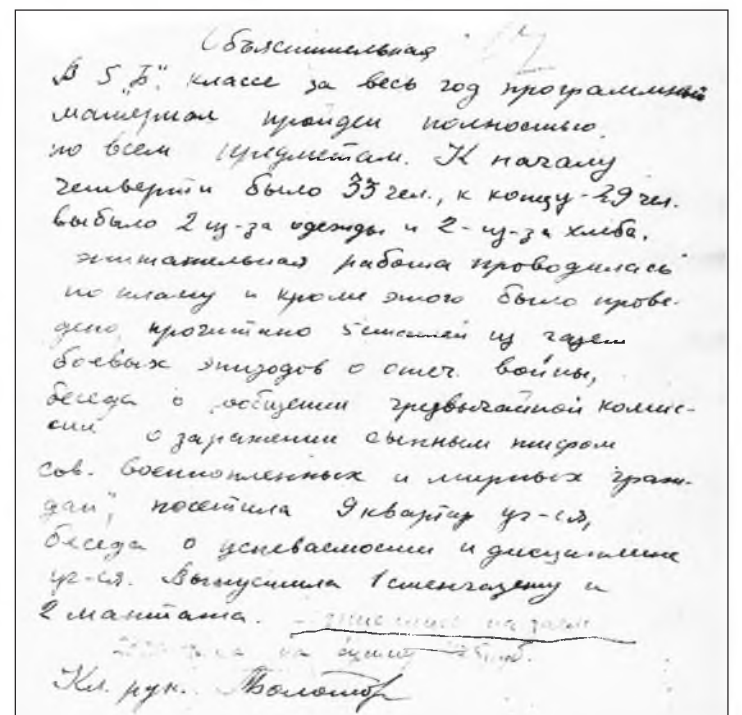 Объяснительная
В 5 „Б“ классе за весь год программный
материал пройден полностью
по всем предметам. К началу
четверти было 33 чел., к концу - 29 чел.
выбыло 2 из-за одежды и 2 - из-за хлеба.
работа проводилась
по плану и кроме этого было прове-
дено, прочитано 5 статей из газет
боевых эпизодов о отеч. войны,
беседа о „сообщении чрезвычайной комис-
сии о заражении сыпным тифом
сов. военнопленных и мирных граж-
дан“, посетила 9 квартир уч-ся,
беседа о успеваемости и дисциплине
уч-ся. Выпустила 1 стенгазету и
2 монтажа.
на сумму
Кл. рук.